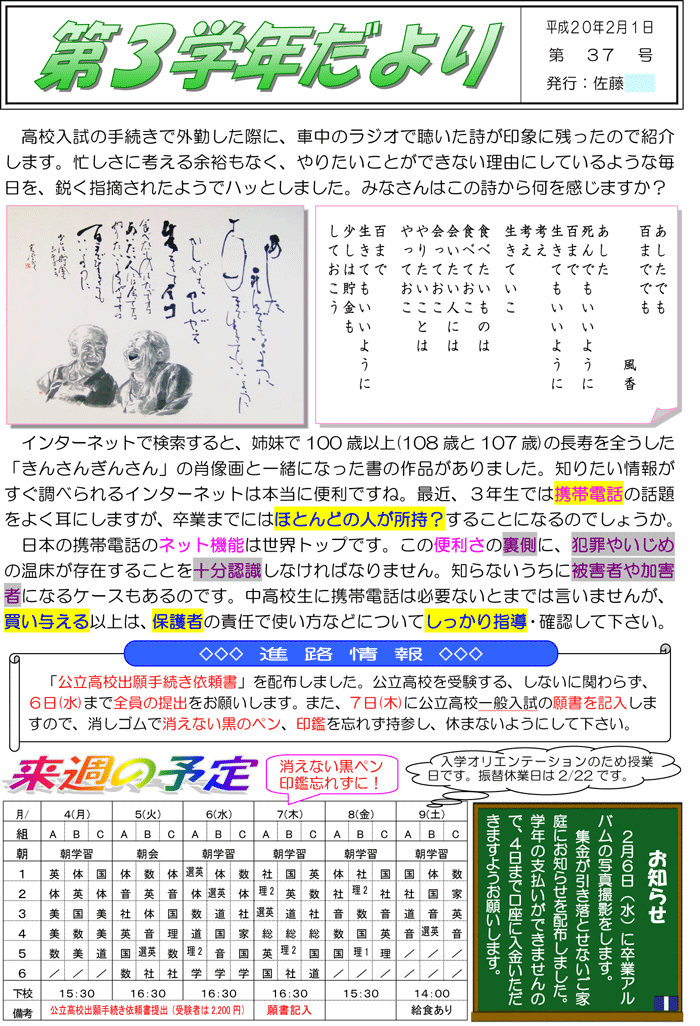 第3学年だより
平成20年2月1日
第 37 号
発行:佐藤
高校入試の手続きで外勤した際に、車中のラジオで聴いた詩が印象に残ったので紹介
します。忙しさに考える余裕もなく、やりたいことができない理由にしているような毎
日を、鋭く指摘されたようでハッとしました。みなさんはこの詩から何を感じますか?
あしたでも
百まででも
風香
あした
死んでもいいように
百まで
生きてもいいように
考え
考え
生きていこ
食べたいものは
食べておこ
会いたい人には
会っておこ
やりたいことは
やっておこ
百まで
生きてもいいように
少しは貯金も
しておこう
インターネットで検索すると、姉妹で100歳以上(108歳と107歳)の長寿を全うした
「きんさんぎんさん」の肖像画と一緒になった書の作品がありました。知りたい情報が
すぐ調べられるインターネットは本当に便利ですね。最近、3年生では携帯電話の話題
をよく耳にしますが、卒業までにはほとんどの人が所持?することになるのでしょうか。
日本の携帯電話のネット機能は世界トップです。この便利さの裏側に、犯罪やいじめ
の温床が存在することを十分認識しなければなりません。知らないうちに被害者や加害
者になるケースもあるのです。中高校生に携帯電話は必要ないとまでは言いませんが、
買い与える以上は、保護者の責任で使い方などについてしっかり指導・確認して下さい。
◇◇◇ 進路情報 ◇◇◇
「公立高校出願手続き依頼書」を配布しました。公立高校を受験する、しないに関わらず、
6日(水)まで全員の提出をお願いします。また、7日(木)に公立高校一般入試の願書を記入しま
すので、消しゴムで消えない黒のペン、印鑑を忘れず持参し、休まないようにして下さい。
来週の予定
消えない黒ペン
印鑑忘れずに!
入学オリエンテーションのため授業
日です。振替休業日は2/22です。
月/ 4(月) 5(火) 6(水) 7(木) 8(金) 9(土)
組 A B C A B C A B C A B C A B C A B C
朝 朝学習 朝会 朝学習 朝学習 朝学習 朝学習
1 英 体 国 体 数 体 選英 体 数 社 国 英 体 社 国 国 体 数
2 体 英 体 音 英 音 体 選英 体 理2 英 数 社 理2 社 社 国 家
3 美 国 美 社 体 国 数 道 社 選英 道 社 音 数 音 道 音 英
4 美 数 美 英 音 理 道 国 家 総 総 総 数 国 英 音 選英 音
5 数 美 道 国 選英 数 理2 音 国 英 理2 国 国 理1 理 / / /
6 / / / 数 社 社 学 学 学 国 社 道 / / / / / /
下校 15:30 16:30 16:30 16:30 15:30 14:00
備考 公立高校出願手続き依頼書提出(受験者は2,200円) 願書記入 給食あり
お知らせ
2月6日(水)に卒業アル
バムの写真撮影をします。
集金が引き落とせないご家
庭にお知らせを配布しました。
学年の支払いができませんの
で、4日まで口座に入金いただ
きますようお願いします。